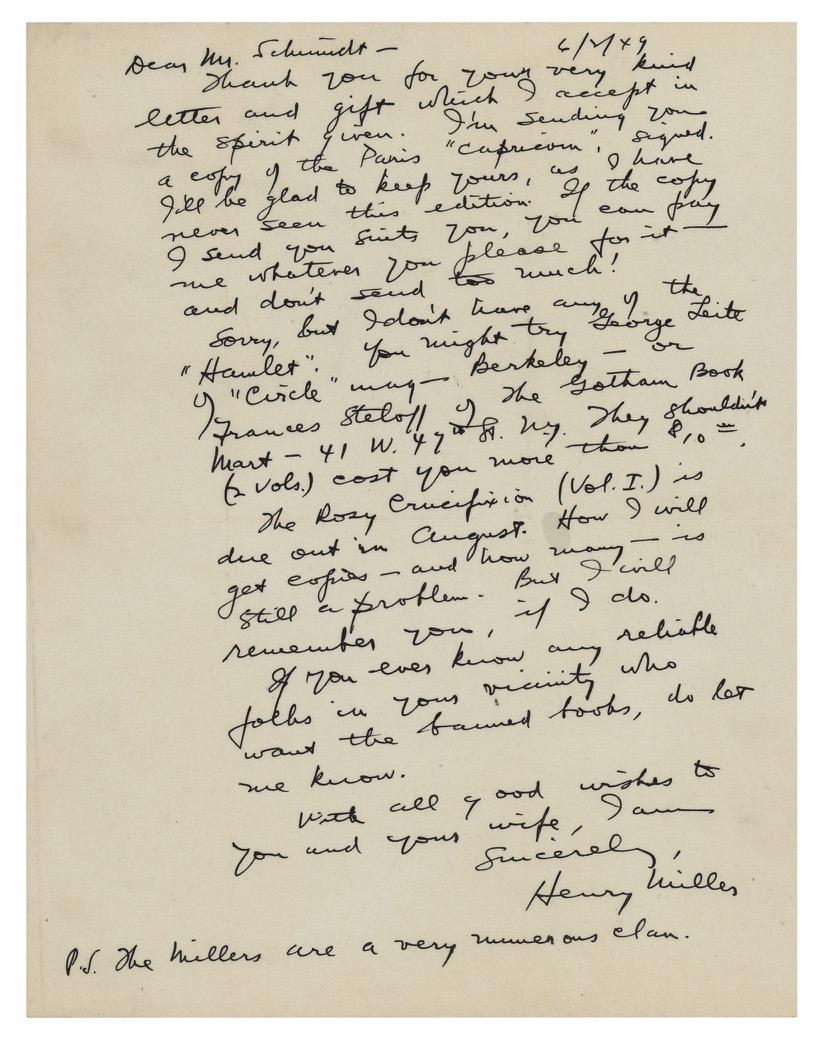 Dear Mr. Schmidt — 6/2/49
Thank you for your very kind
letter and gift which I accept in
the spirit given. I'm sending you
a copy of the Paris "Capricorn", signed.
I'll be glad to keep yours, as I have
never seen this edition. If the copy
I send you suits you, you can pay
me whatever you please for it —
and don't send too much!
Sorry, but I don't have any of the
"Hamlet". You might try George Leite
of "Circle" mag — Berkeley — or
Frances Steloff of The Gotham Book
Mart — 41 W. 47th St. N.Y. They shouldn't
(2 vols.) cost you more than $10=.
The Rosy Crucifixion (Vol. I.) is
due out in August. How I will
get copies — and how many — is
still a problem. But I will
remember you, if I do.
If you ever know any reliable
folks in your vicinity who
want the banned books, do let
me know.
With all good wishes to
you and your wife, I am
Sincerely,
Henry Miller
P.S. The Millers are a very numerous clan.